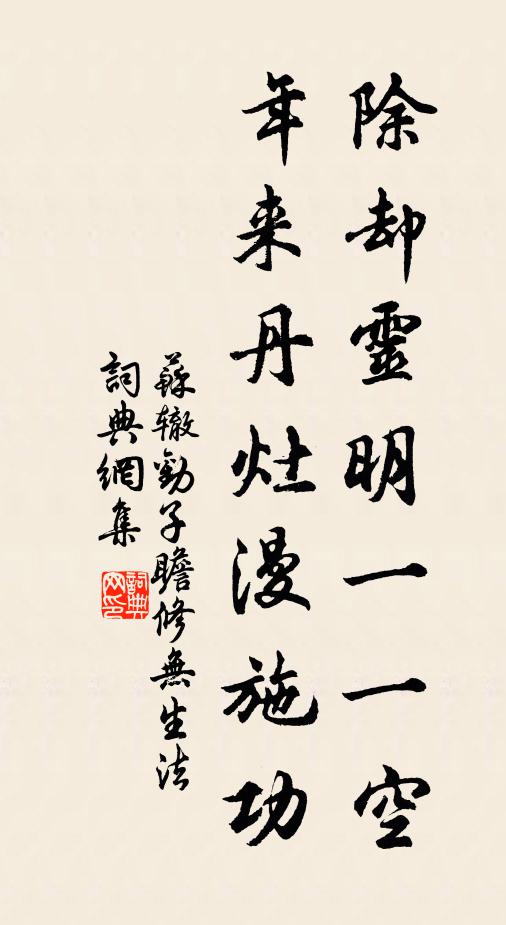 除却靈明一一空
年来丹灶漫施功
蘇辙勸子瞻修無生法
詞典網集
詞典網印